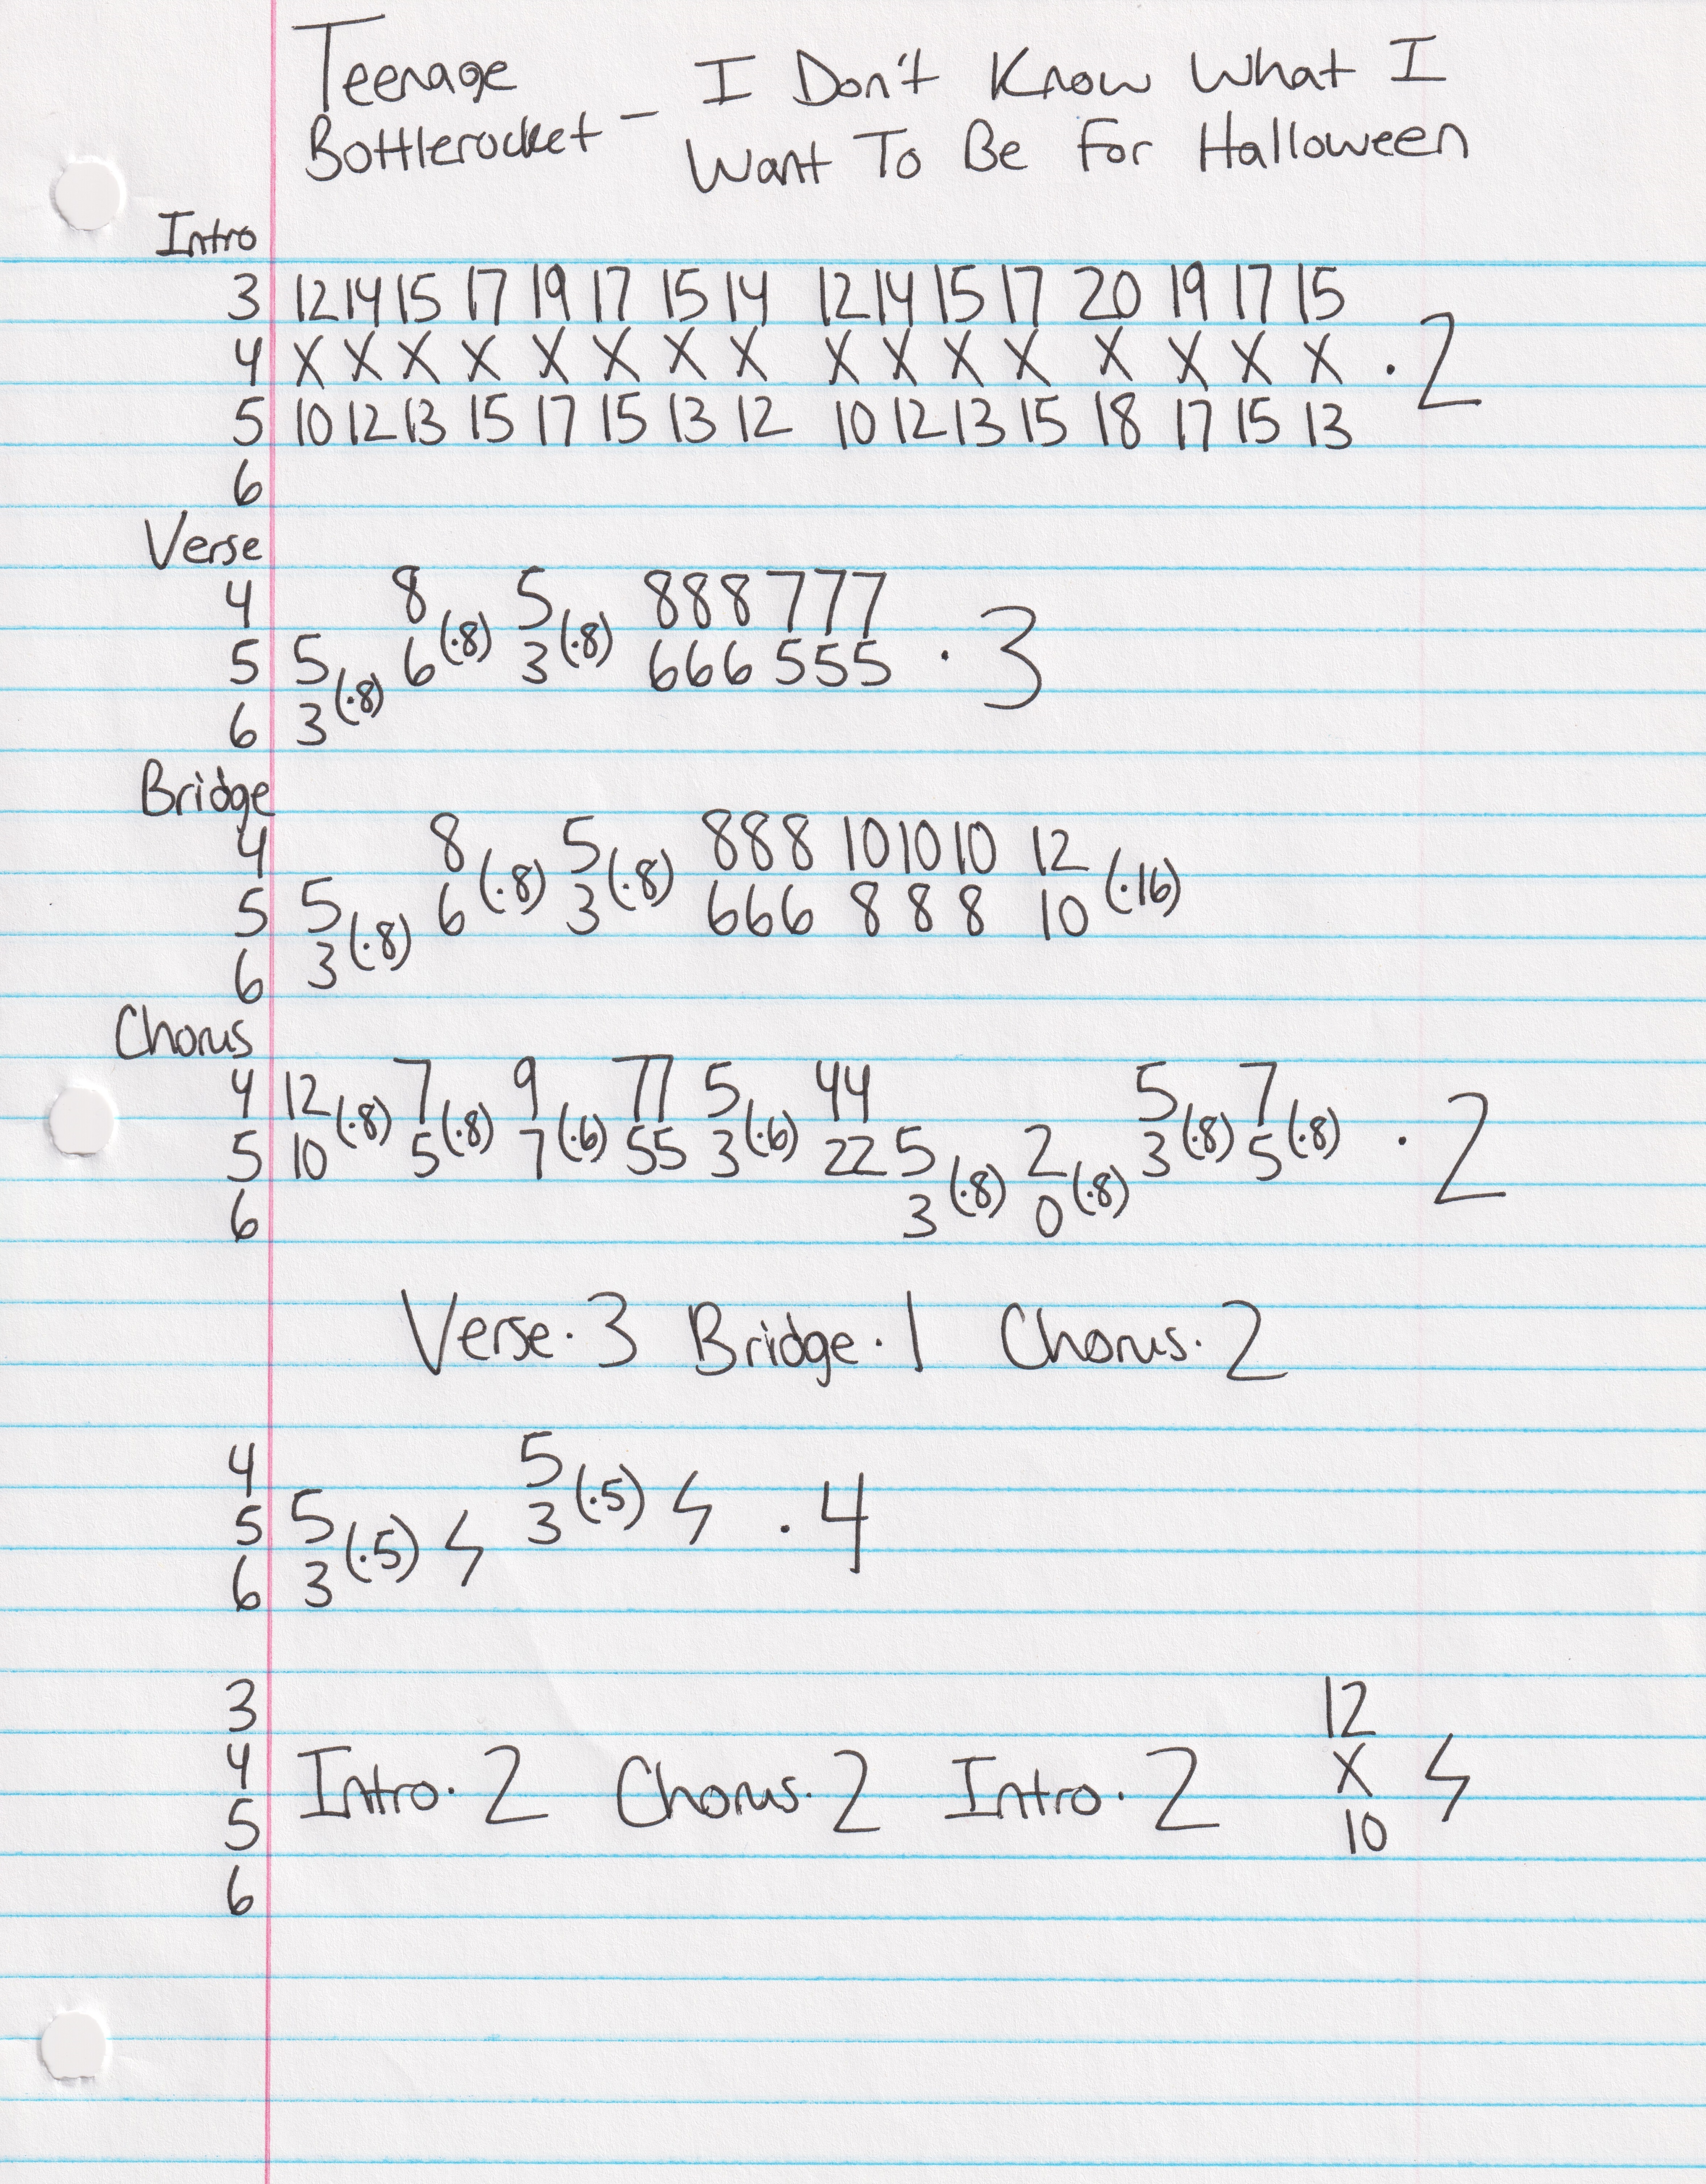 Teenage
Bottlerocket - I Don't Know What I
Want To Be For Halloween
Intro
3 12 14 15 17 19 17 15 14 12 14 15 17 20 19 17 15
4 X X X X X X X X X X X X X X X X . 2
5 10 12 13 15 17 15 13 12 10 12 13 15 18 17 15 13
6
Verse
4 8 5 888 777
5 5 6 (.8) 3 (.8) 666 555 . 3
6 3 (.8)
Bridge
4 8 5 888 10 10 10 12
5 5 6 (.8) 3 (.8) 666 8 8 8 10 (.16)
6 3 (.8)
Chorus
4 12 (.8) 7 (.8) 9 77 5 44 5 7
5 10 5 7 (.6) 55 3 (.6) 22 5 2 3 (.8) 5 (.8) . 2
6 3 (.8) 0 (.8)
Verse . 3 Bridge . 1 Chorus . 2
4 5
5 5 3 (.5) . 4
6 3 (.5)
3 12
4 Intro . 2 Chorus . 2 Intro . 2 X
5 10
6